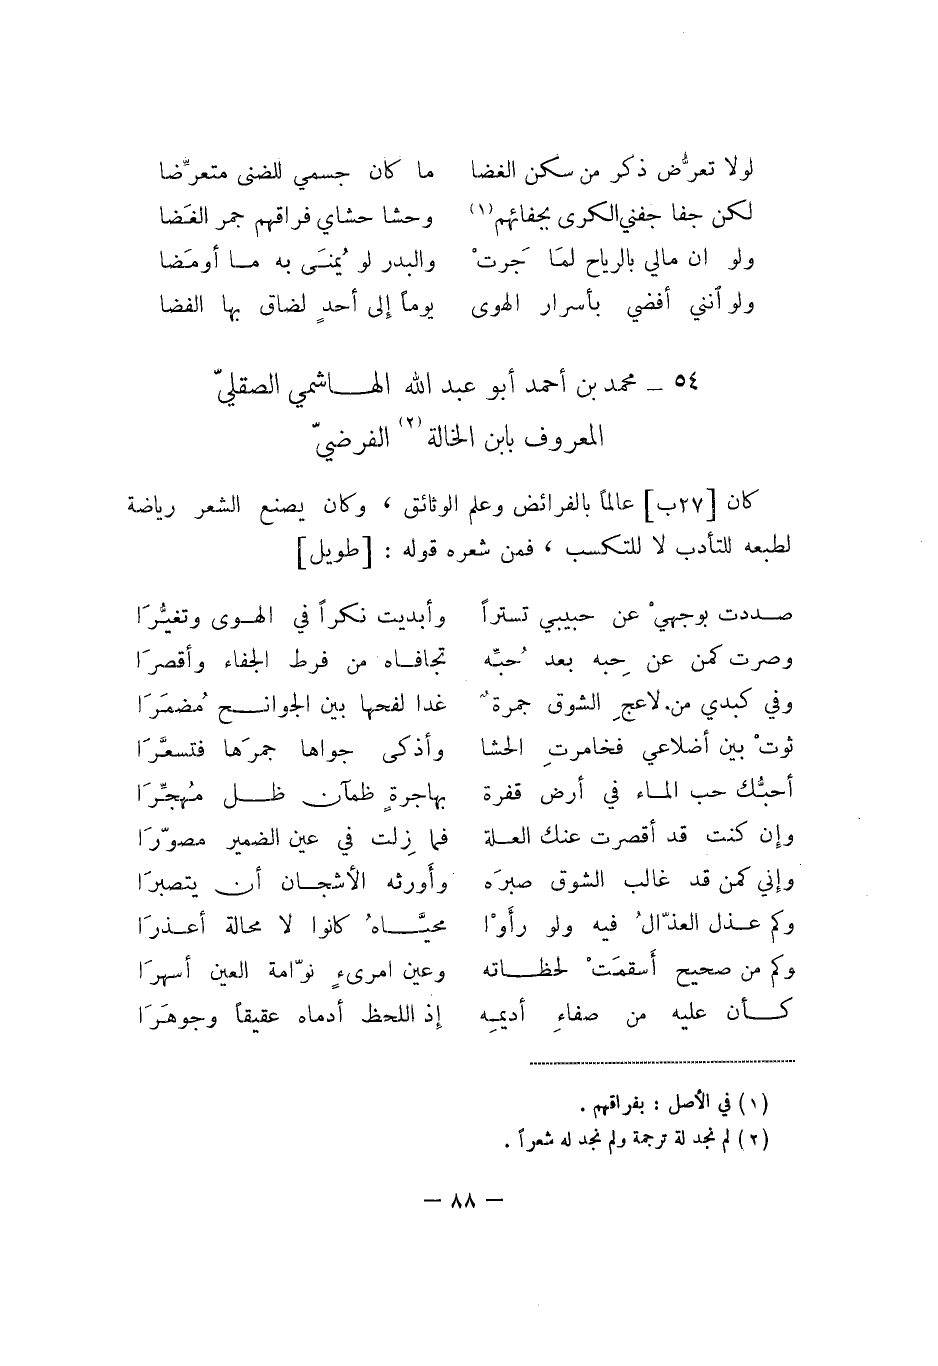 لولا تعرُّض ذكر من سكن الغضا ما كان جسمي للضنى متعرّضا
لكن جفا جفني الكرى بجفائهم(١) وحشا حشاي فراقهم جمر الغَضا
ولو ان مالي بالرياح لمَا جَرتْ والبدر لو يُمنَى به مــا أومَضا
ولو أنني أفضي بأسرار الهوى يوماً إلى أحدٍ لضاق بها الفضا
٥٤ ــ محمد بن أحمد أبو عبد الله الهــاشمي الصقليّ
المعروف بابن الخالة(٢) الفرضيّ
كان [٢٧ب] عالماً بالفرائض وعلم الوثائق ، وكان يصنع الشعر رياضة
لطبعه للتأدب لا للتكسب ، فمن شعره قوله : [طويل]
صــددت بوجهيْ عن حبيبي تستراً وأبديت نكراً في الهــوى وتغيُّرَا
وصرت كمن عن حِبه بعد حُبّه تجافــاه من فرط الجفاء وأقصرَا
وفي كبدي من لاعجِ الشوق جمرةٌ غدا لفحها بين الجوانــح مُضمَرَا
ثوتْ بين أضلاعي فخامرتِ الحشا وأذكى جواها جمرَها فتسعَّرَا
أحبُّك حب المــاء في أرض قفرة بهاجرةٍ ظمآن ظــل مُهجِّرَا
وإن كنت قد أقصرت عنك العــلة فما زِلت في عين الضمير مصوّرَا
وإني كمن قد غالب الشوق صبرَه وأورثه الأشجــان أن يتصبرَا
وكم عــذل العذّالُ فيه ولو رأوْا محيَّــاهُ كانوا لا محالة أعــذرَا
وكم من صحيح أسقمَتْ لحظــاته وعين امرىءٍ نوّامة العين أسهرَا
كــأن عليه من صفاءِ أديمِه إذ اللحظ أدماه عقيقاً وجوهَرَا
(١) في الأصل : بفراقهم .
(٢) لم نجد لة ترجمة ولم نجد له شعراً .
— ٨٨ —